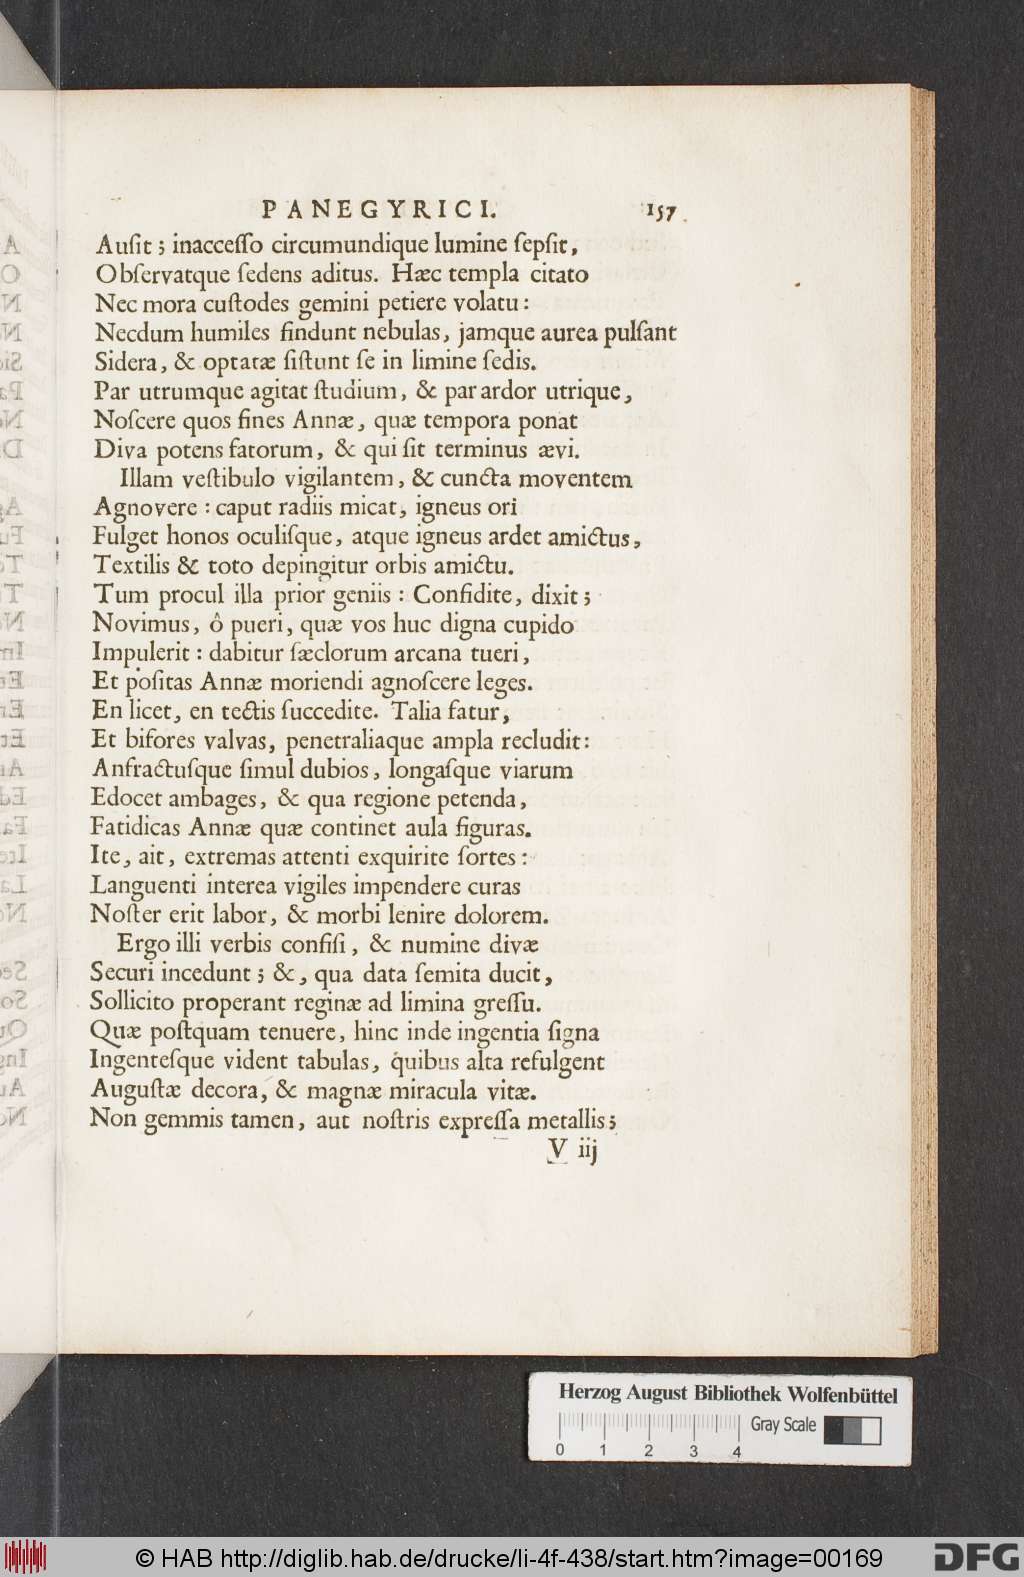 PANEGYRICI. 157
Auſit ; inacceſſo circumundique lumine ſepſit,
Obſervatque ſedens aditus. Hæc templa citato
Nec mora cuſtodes gemini petiere volatu :
Necdum humiles findunt nebulas, jamque aurea pulſant
Sidera, & optatæ ſiſtunt ſe in limine ſedis.
Par utrumque agitat ſtudium, & par ardor utrique,
Noſcere quos fines Annæ, quæ tempora ponat
Diva potens fatorum, & qui ſit terminus ævi.
Illam veſtibulo vigilantem, & cuncta moventem
Agnovere : caput radiis micat, igneus ori
Fulget honos oculiſque, atque igneus ardet amictus,
Textilis & toto depingitur orbis amictu.
Tum procul illa prior geniis : Confidite, dixit ;
Novimus, ô pueri, quæ vos huc digna cupido
Impulerit : dabitur ſæclorum arcana tueri,
Et poſitas Annæ moriendi agnoſcere leges.
En licet, en tectis ſuccedite. Talia fatur,
Et bifores valvas, penetraliaque ampla recludit :
Anfractuſque ſimul dubios, longaſque viarum
Edocet ambages, & qua regione petenda,
Fatidicas Annæ quæ continet aula figuras.
Ite, ait, extremas attenti exquirite ſortes :
Languenti interea vigiles impendere curas
Noſter erit labor, & morbi lenire dolorem.
Ergo illi verbis confiſi, & numine divæ
Securi incedunt ; &, qua data ſemita ducit,
Sollicito properant reginæ ad limina greſſu.
Quæ poſtquam tenuere, hinc inde ingentia ſigna
Ingenteſque vident tabulas, quibus alta refulgent
Auguſtæ decora, & magnæ miracula vitæ.
Non gemmis tamen, aut noſtris expreſſa metallis ;
V iij
Herzog August Bibliothek Wolfenbüttel
Gray Scale
0 1 2 3 4
© HAB http://diglib.hab.de/drucke/li-4f-438/start.htm?image=00169
DFG